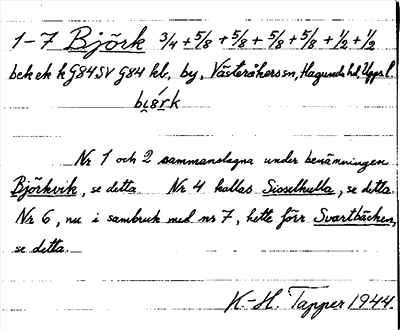 1-7 Björk 3/4 + 5/8 + 5/8 + 5/8 + 5/8 + 1/2 + 1/2
bek ek k G84SV G84 kl, by, Västeråkers sn, Hagunda hd, Upps l.
Nr 1 och 2 sammanslagna under benämningen
Björkvik, se detta. Nr 4 kallas Sisselhulla, se detta.
Nr 6, nu i sambruk med nr 7, hette förr Svartbäcken,
se detta.
K.-H. Tapper 1944.